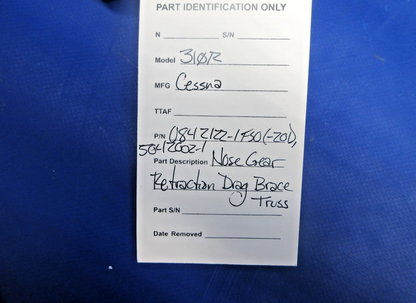 PART IDENTIFICATION ONLY
N S/N
Model 310R
MFG Cessna
TTAF
P/N 0842122-1 FSO (-201),
5042002-1
Part Description Nose Gear
Retraction Drag Brace
Truss
Part S/N
Date Removed